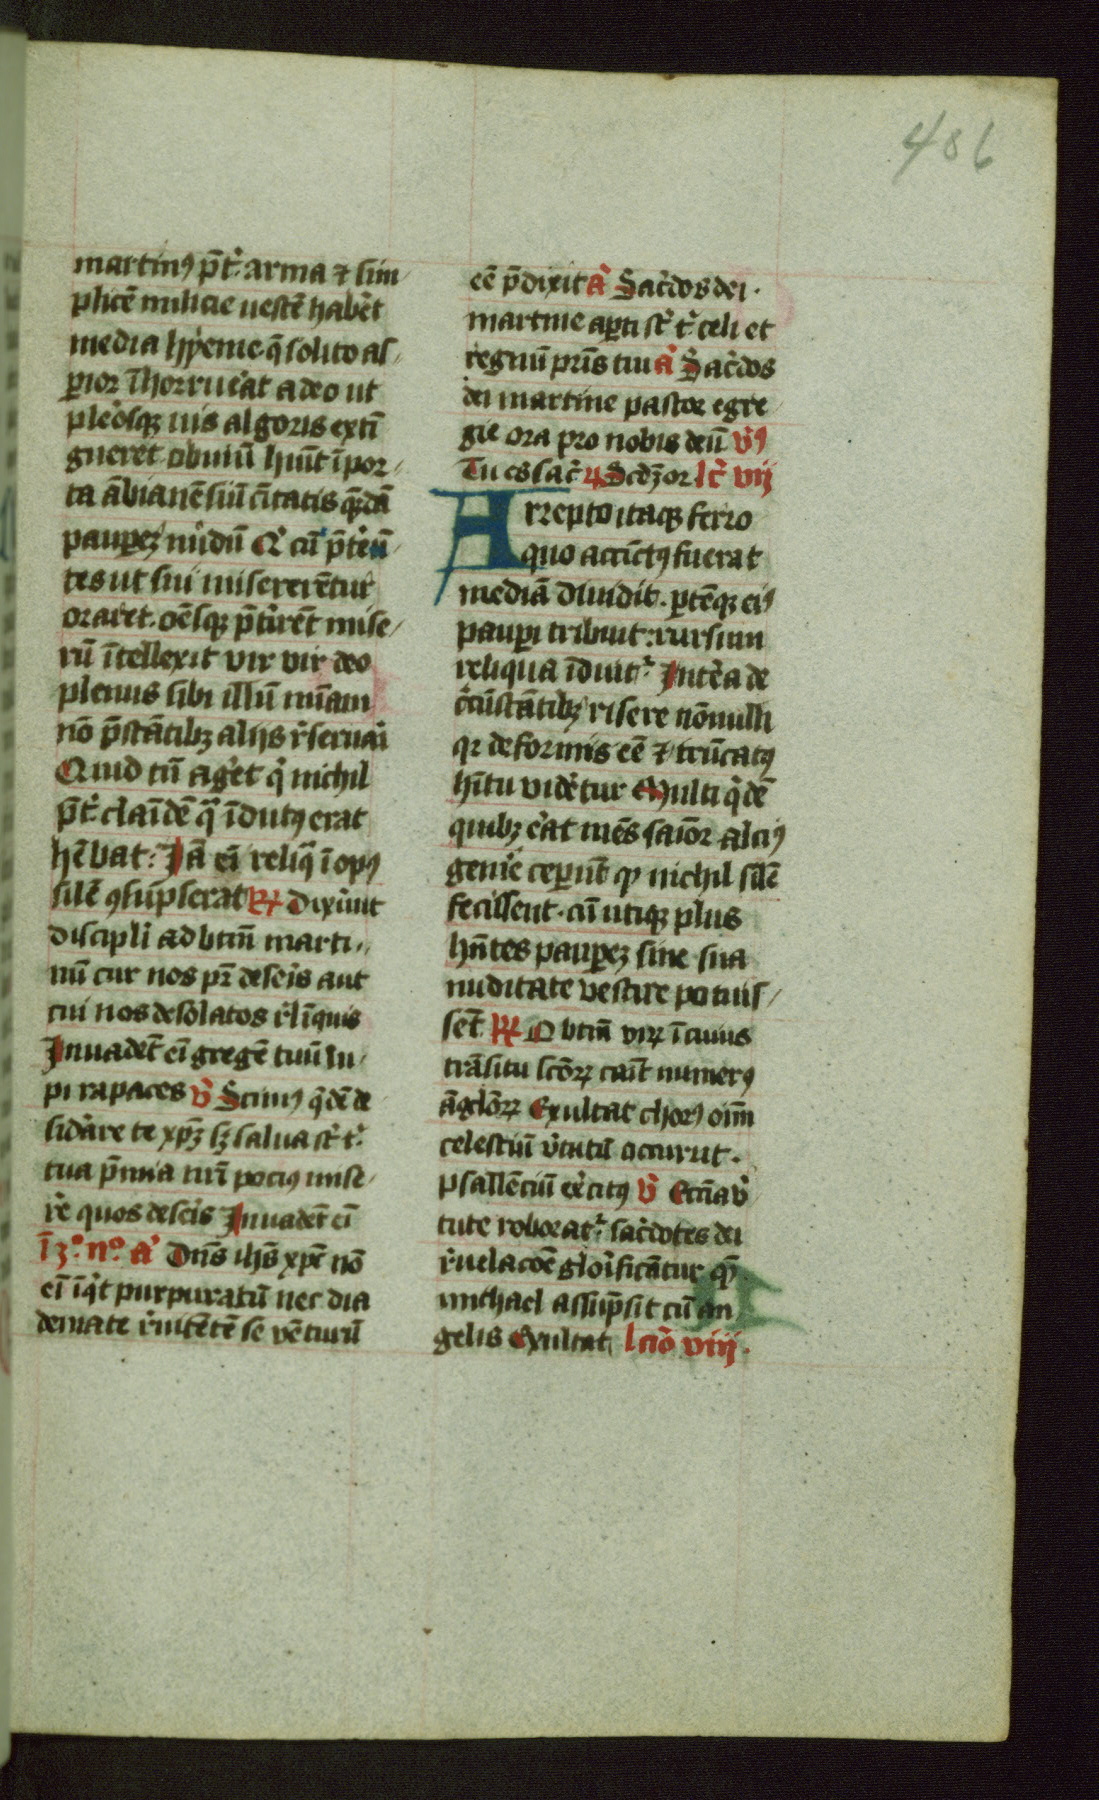 486
martinꝯ p̄t̾ arma ⁊ sim
plicē milicie uestē hab̾et
media hyeme q̄ solito as
p̱ior Inhorruerat adeo ut
pleosqꝫ uis algoris exti
gueret obuiū hūt ī por
ta ābianēsiū ciuitatis q̄dā
paup̱eꝫ nudū Qͥ cū p̄tereū
tes ut sui misererētur
oraret. oēsqꝫ p̄tirēt mise
rū ītellexit vir vir deo
plenus sibi illū mīam
nō p̄stātibꝫ aliis r̾seruari
Quid tn̄ ag̾et qͥ nichil
p̄t̾ claīdē qͣ īdutꝯ erat
hēbat: Iā eī reliqͣ ī opꝯ
silē ꝯsūpserat R̸ Dixerūt
discipli ad btm̄ marti
nū cur nos pr̄ deseis aut
cui nos desolatos r̾līquis
Inuadēt eī gregē tuū lu
pi rapaces v̾ Scimꝯ qͥdē de
sid̾are te xp̄ꝫ sꝫ salua st̾ t̾
tua p̄mia nr̄i pociꝯ mise
r̾e quos deseis Inuadēt eī
ī ꝫº nº a̾ Dn̄s ih̄s xp̄c nō
eī īq̾t purpuratū nec dia
demate r̾nitētē se vēturū
eē p̄dixit a̾ Sac̾dos dei.
martine ap̱ti st̾ t̾ celi et
regnū pr̄is tui a̾ Sac̾dos
dei martine pastor egre
gie ora pro nobis deū v̾ꝯ
Tu es sac̾ Scdꝫ or lc̾ vij
Arrepto itaqꝫ ferro
quo accinctꝯ fuerat
mediā diuidit. p̱tēqꝫ eiꝯ
paup̱i tribuit: rursum
reliqua īduit̾ Int̾ea de
c̾cūstātibꝫ risere nōnulli
qr deformis eē ⁊ trūcatꝯ
hītu vid̾etur Multi qͥdē
quibꝫ e̾at mēs saior alciꝯ
gem̾e cep̱unt ꝙ nichil silē
fecissent. cū utiqꝫ plus
hn̄tes paup̱eꝫ sine sua
nuditate vestire potuis
sēt R̸ O btm̄ virꝝ ī cuius
trāsitu scōꝝ canit numerꝯ
āgelōꝝ Exultat chorꝯ oīm
celestiū v̾tutū occurit.
psallēciū ex̾citꝯ v̾ Eccīa v̾
tute roborat̾ sac̾dotes dei
r̾uelacōe glorificātur qm̄
michael assūpsit cū an
gelis Exultat lcīo viij.